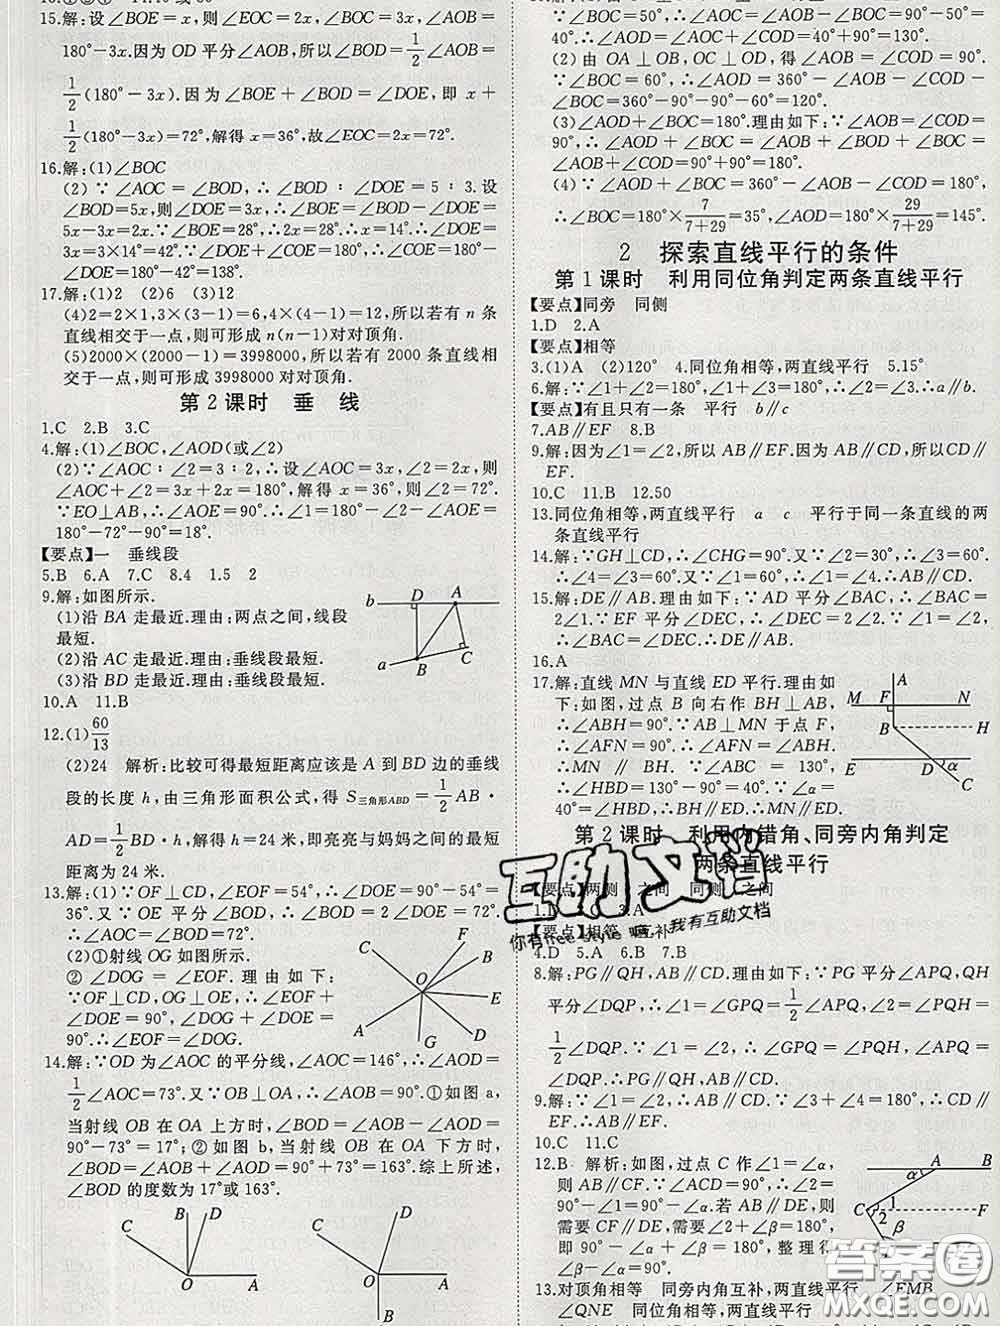 15.解:设∠BOE=x,则∠EOC=2x,∠BOC=3x,∠AOB=
180°-3x.因为 OD 平分∠AOB,所以∠BOD=1/2∠AOB=
1/2(180°-3x).因为∠BOE+∠BOD=∠DOE,即 x+
1/2(180°-3x)=72°,解得 x=36°,故∠EOC=2x=72°.
16.解:(1)∠BOC
(2)∵∠AOC=∠BOD,∴∠BOD∶∠DOE=5∶3.设
∠BOD=5x,则∠DOE=3x,∴∠BOE=∠BOD-∠DOE=
5x-3x=2x.∵∠BOE=28°,∴2x=28°.∴x=14°.∴∠DOE=
3x=3×14°=42°.∵∠DOE+∠COE=180°,∴∠COE=180°-
∠DOE=180°-42°=138°.
17.解:(1)2 (2)6 (3)12
(4)2=1×2,3×(3-1)=6,4×(4-1)=12,所以若有 n 条
直线相交于一点,则可形成 n(n-1)对对顶角.
(5)2000×(2000-1)=3998000,所以若有 2000 条直线相
交于一点,则可形成 3998000 对对顶角.
第 2 课时 垂 线
1.C 2.B 3.C
4.解:(1)∠BOC,∠AOD(或∠2)
(2)∵∠AOC∶∠2=3∶2,∴设∠AOC=3x,∠2=2x,则
∠AOC+∠2=3x+2x=180°,解得 x=36°,则∠2=72°.
∵EO⊥AB,∴∠AOE=90°.∴∠1=180°-∠2-∠AOE=
180°-72°-90°=18°.
【要点】一 垂线段
5.B 6.A 7.C 8.4 1.5 2
9.解:如图所示.
(1)沿 BA 走最近.理由:两点之间,线段
最短.
(2)沿 AC 走最近.理由:垂线段最短.
(3)沿 BD 走最近.理由:垂线段最短.
b D A
a B C
10.A 11.B
12.(1)60/13
(2)24 解析:比较可得最短距离应该是 A 到 BD 边的垂线
段的长度 h,由三角形面积公式,得 S三角形ABD=1/2AB·
AD=1/2BD·h,解得 h=24 米,即亮亮与妈妈之间的最短
距离为 24 米.
13.解:(1)∵OF⊥CD,∠EOF=54°,∴∠DOE=90°-54°=
36°.又∵OE 平分∠BOD,∴∠BOD=2∠DOE=72°,
∴∠AOC=∠BOD=72°.
(2)①射线 OG 如图所示.
②∠DOG=∠EOF.理由如下:
∵OF⊥CD,OG⊥OE,∴∠EOF+
∠DOE=90°,∠DOG+∠DOE=
90°.∴∠EOF=∠DOG.
C F B O E A G D
14.解:∵OD 为∠AOC 的平分线,∠AOC=146°,∴∠AOD=
1/2∠AOC=73°.又∵OB⊥OA,∴∠AOB=90°.①如图 a,
当射线 OB 在 OA 上方时,∠BOD=∠AOB-∠AOD=
90°-73°=17°;②如图 b,当射线 OB 在 OA 下方时,
∠BOD=∠AOB+∠AOD=90°+73°=163°.综上所述,
∠BOD 的度数为 17°或 163°.
C B D O A
C D O A B
∵∠BOC=50°,∴∠AOB=∠AOC-∠BOC=90°-50°=
40°.∴∠AOD=∠AOB+∠BOD=40°+90°=130°.
(2)由 OA⊥OB,OC⊥OD,得∠AOB=∠COD=90°.
∵∠BOC=60°,∴∠AOD=360°-∠AOB-∠COD-
∠BOC=360°-90°-90°-60°=120°.
(3)∠AOD+∠BOC=180°.理由如下:∵∠AOB+∠COD+
∠AOD+∠BOC=360°,∠AOB=∠COD=90°,∴∠AOD+
∠BOC=360°-90°-90°=180°.
(4)∵∠AOD+∠BOC=360°-∠AOB-∠COD=180°,
∴∠BOC=180°×7/(7+29)=35°,∠AOD=180°×29/(7+29)=145°.
2 探索直线平行的条件
第 1 课时 利用同位角判定两条直线平行
【要点】同旁 同侧
1.D 2.A
【要点】相等
3.(1)A (2)120° 4.同位角相等,两直线平行 5.15°
6.解:∵∠1+∠2=180°,∠1+∠3=180°,∴∠2=∠3.∴a∥b.
【要点】有且只有一条 平行 b∥c
7.AB∥EF 8.B
9.解:因为∠1=∠2,所以 AB∥EF.因为 AB∥CD,所以 CD∥
EF.
10.C 11.B 12.50
13.同位角相等,两直线平行 a c 平行于同一条直线的两
条直线平行
14.解:∵GH⊥CD,∴∠CHG=90°.又∵∠2=30°,∴∠3=60°.
∴∠4=∠3=60°.又∵∠1=60°,∴∠1=∠4.∴AB∥CD.
15.解:DE∥AB.理由如下:∵AD 平分∠BAC,∴∠BAC=
2∠1.∵EF 平分∠DEC,∴∠DEC=2∠2.又∵∠1=∠2,
∴∠BAC=∠DEC.∴DE∥AB.
16.A
17.解:直线 MN 与直线 ED 平行.理由如
下:如图,过点 B 向右作 BH⊥AB,
∴∠ABH=90°.∵AB⊥MN 于点 F,
∴∠AFN=90°.∴∠AFN=∠ABH.
∴MN∥BH.∵∠ABC=130°,
∴∠HBD=130°-90°=40°.∵∠α=
40°=∠HBD,∴BH∥ED.∴MN∥ED.
A M F N B H E D α C
第 2 课时 利用内错角、同旁内角判定
两条直线平行
【要点】两侧 之间 同侧 之间
【要点】相等 互补
4.D 5.A 6.B 7.B
8.解:PG∥QH,AB∥CD.理由如下:∵PG 平分∠APQ,QH
平分∠DQP,∴∠1=∠GPQ=1/2∠APQ,∠2=∠PQH=
1/2∠DQP.又∵∠1=∠2,∴∠GPQ=∠PQH,∠APQ=
∠DQP.∴PG∥QH,AB∥CD.
9.解:∵∠1=∠2,∴AB∥CD.∵∠3+∠4=180°,∴CD∥
EF.∴AB∥EF.
10.C 11.C
12.B 解析:如图,过点 C 作∠1=∠α,
则 AB∥CF.∵∠ACD=90°,∴∠2=
90°-∠1=90°-∠α.若 AB∥DE,则
需要 CF∥DE,需要∠2+∠β=180°,
即 90°-∠α+∠β=180°,整理得
∠β-∠α=90°.
A B α C 1 2 β
13.对顶角相等 同旁内角互补,两直线平行 ∠EMB
∠QNE 同位角相等,两直线平行
互助文档
你有free style 嘛 我有互助文档
答案圈
MXQE.COM